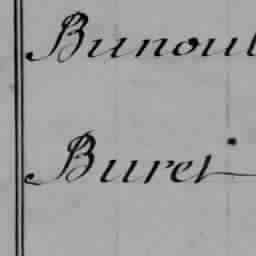 Bunoul
Buret